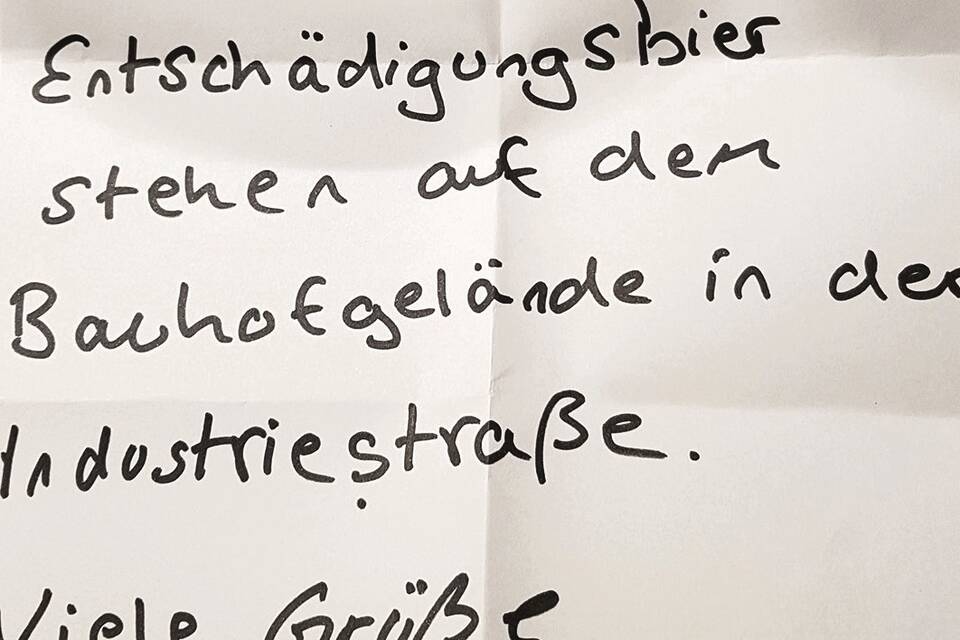 Entschädigungsbier
stehen auf dem
Bauhofgelände in der
Industriestraße.
Viele Grüße